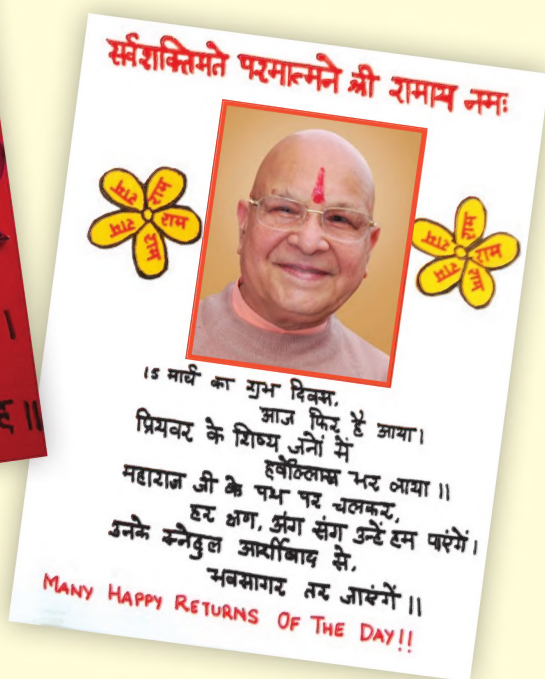 सर्वशक्तिमते परमात्मने श्री रामाय नमः
राम राम राम राम राम
राम राम राम राम राम
15 मार्च का शुभ दिवस,
आज फिर है आया।
प्रियवर के शिष्य जनों में
हर्षोल्लास भर लाया ॥
महाराज जी के पथ पर चलकर,
हर क्षण, अंग संग उन्हें हम पाएंगें।
उनके स्नेहुल आर्शीवाद से,
भवसागर तर जाएंगें ॥
MANY HAPPY RETURNS OF THE DAY!!
।
ह ॥